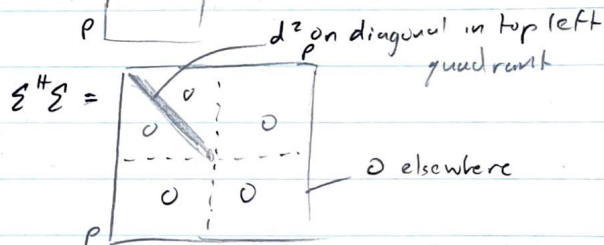 p
d² on diagonal in top left
quadrant
p
ΣᴴΣ =
0
0
0
0 elsewhere
0
0
p